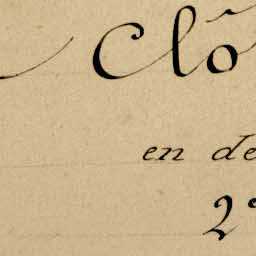 Clô
en de
2